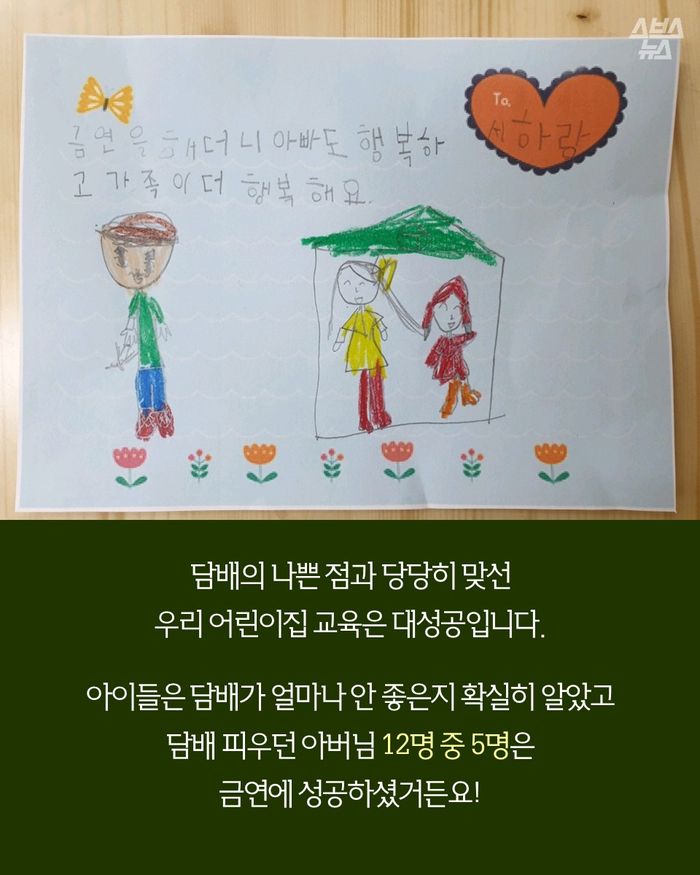 스브스
뉴스
To.
씬 하랑
금연을 해더니 아빠도 행복하
고 가족이 더 행복해요.
담배의 나쁜 점과 당당히 맞선
우리 어린이집 교육은 대성공입니다.
아이들은 담배가 얼마나 안 좋은지 확실히 알았고
담배 피우던 아버님 12명 중 5명은
금연에 성공하셨거든요!